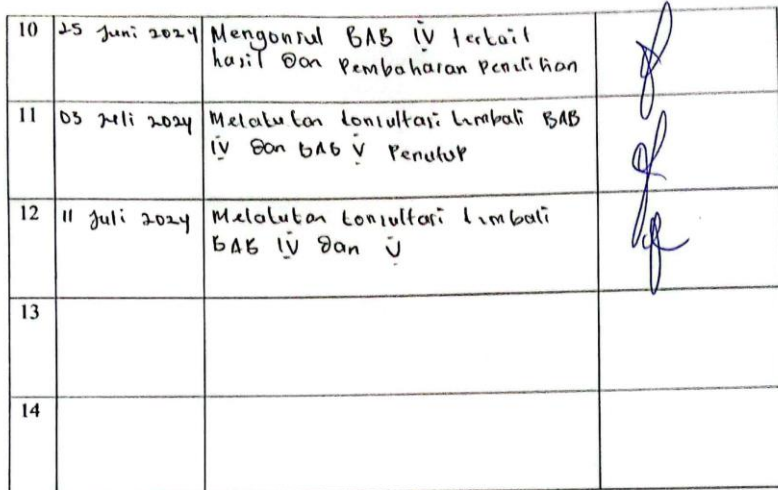 10 25 Juni 2024 Mengonsul BAB IV terkait
hasil dan Pembahasan Penelitian
11 03 Juli 2024 Melakukan konsultasi kembali BAB
IV dan BAB V Penutup
12 11 Juli 2024 Melakukan konsultasi kembali
BAB IV dan V
13
14